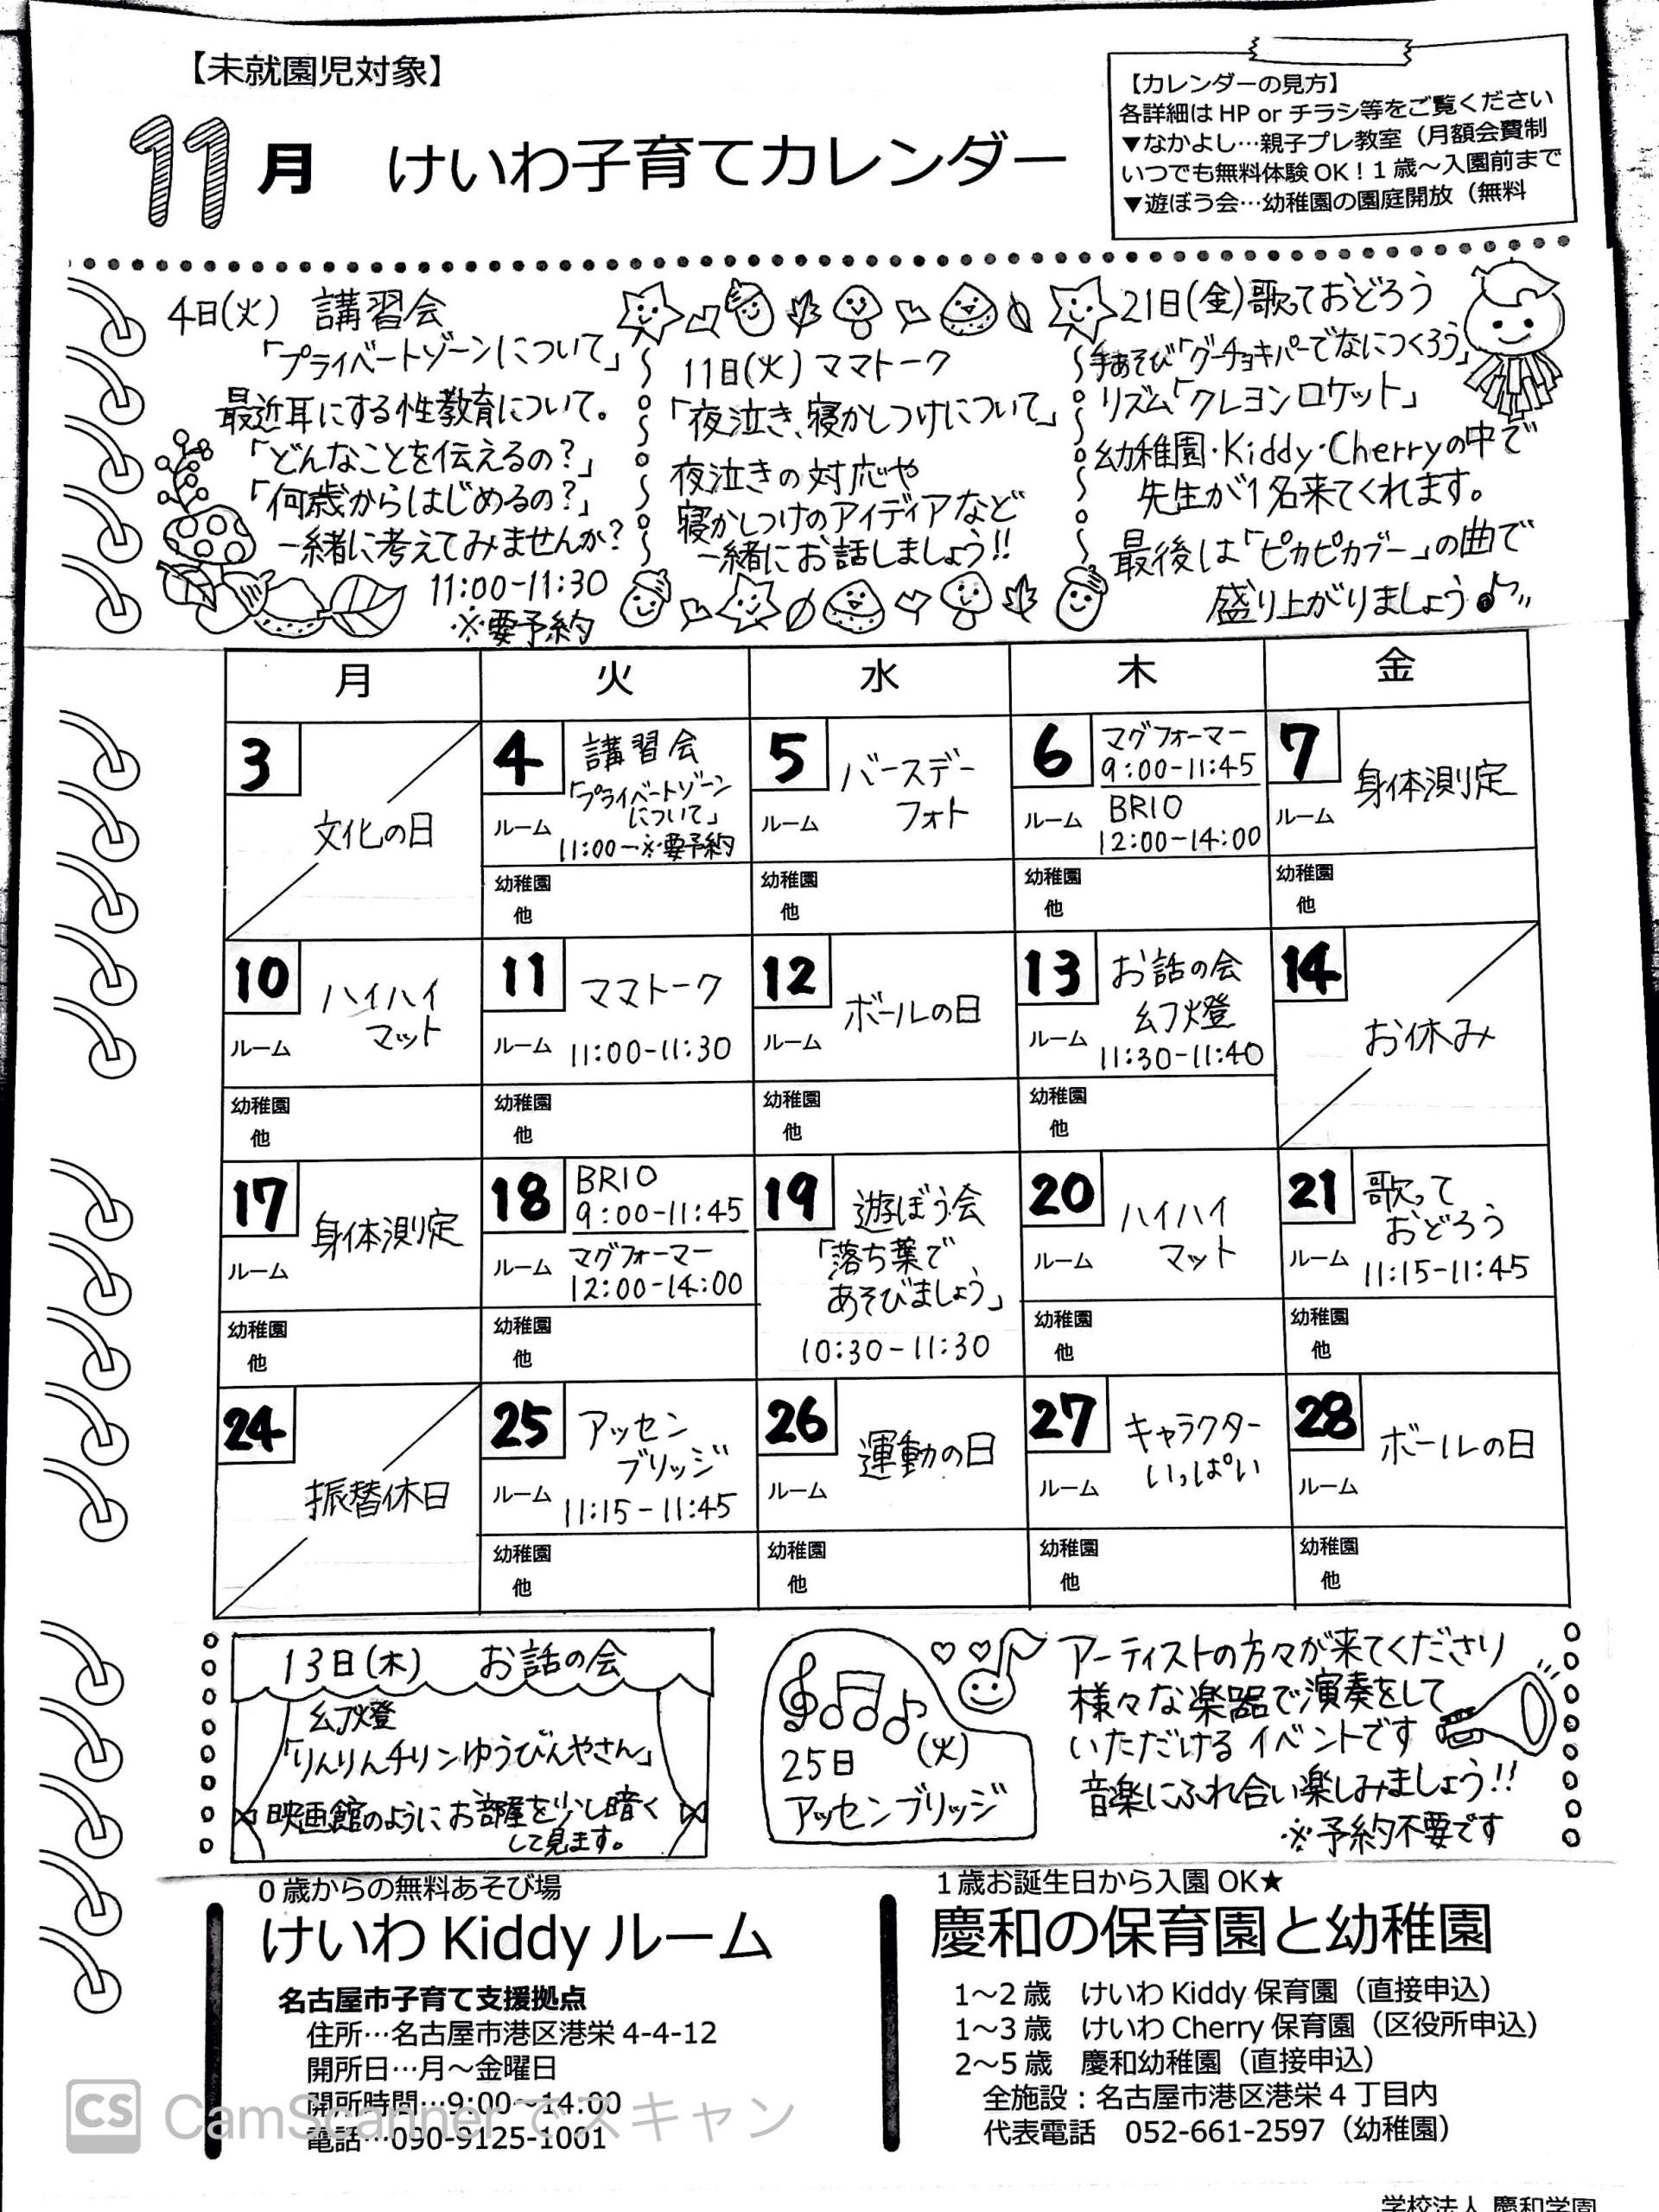 【未就園児対象】
11月 けいわ子育てカレンダー
【カレンダーの見方】
各詳細は HP or チラシ等をご覧ください
▼なかよし…親子プレ教室（月額会費制
いつでも無料体験 OK！1 歳～入園前まで
▼遊ぼう会…幼稚園の園庭開放（無料
4日(火) 講習会
「プライベートゾーンについて」
最近耳にする性教育について。
「どんなことを伝えるの？」
「何歳からはじめるの？」
一緒に考えてみませんか？
11:00-11:30
※要予約
11日(火) ママトーク
「夜泣き、寝かしつけについて」
夜泣きの対応や
寝かしつけのアイディアなど
一緒にお話しましょう!!
21日(金)歌っておどろう
手あそび「グーチョキパーでなにつくろう」
リズム「クレヨンロケット」
幼稚園・Kiddy・Cherryの中で
先生が1名来てくれます。
最後は「ピカピカブー」の曲で
盛り上がりましょう♪
月 火 水 木 金
3
文化の日
4 講習会
「プライベートゾーン
について」
ルーム
11:00-※要予約
幼稚園
他
5 バースデー
フォト
ルーム
幼稚園
他
6 マグフォーマー
9:00-11:45
BRIO
ルーム
12:00-14:00
幼稚園
他
7 身体測定
ルーム
幼稚園
他
10 ハイハイ
マット
ルーム
幼稚園
他
11 ママトーク
ルーム 11:00-11:30
幼稚園
他
12 ボールの日
ルーム
幼稚園
他
13 お話の会
幻燈
ルーム 11:30-11:40
幼稚園
他
14
お休み
17 身体測定
ルーム
幼稚園
他
18 BRIO
9:00-11:45
マグフォーマー
ルーム
12:00-14:00
幼稚園
他
19 遊ぼう会
「落ち葉で
あそびましょう」
10:30-11:30
20 ハイハイ
マット
ルーム
幼稚園
他
21 歌って
おどろう
ルーム 11:15-11:45
幼稚園
他
24
振替休日
25 アッセン
ブリッジ
ルーム 11:15-11:45
幼稚園
他
26 運動の日
ルーム
幼稚園
他
27 キャラクター
いっぱい
ルーム
幼稚園
他
28 ボールの日
ルーム
幼稚園
他
13日(木) お話の会
幻燈
「りんりんチリンゆうびんやさん」
映画館のようにお部屋を少し暗く
して見ます。
25日(火)
アッセンブリッジ
アーティストの方々が来てくださり
様々な楽器で演奏をして
いただけるイベントです
音楽にふれ合い楽しみましょう!!
※予約不要です
0 歳からの無料あそび場
けいわ Kiddy ルーム
名古屋市子育て支援拠点
住所…名古屋市港区港栄 4-4-12
開所日…月～金曜日
開所時間…9:00～14:00
電話…090-9125-1001
1 歳お誕生日から入園 OK★
慶和の保育園と幼稚園
1～2 歳 けいわ Kiddy 保育園（直接申込）
1～3 歳 けいわ Cherry 保育園（区役所申込）
2～5 歳 慶和幼稚園（直接申込）
全施設：名古屋市港区港栄 4 丁目内
代表電話 052-661-2597（幼稚園）
CS CamScannerでスキャン
学校法人 慶和学園